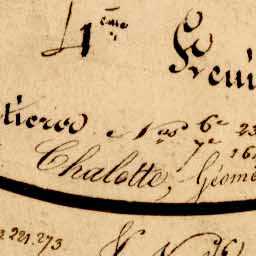 4ème Feui
tieres Nos 6e 23
7e 16
Chalotte, Géomé
221.273